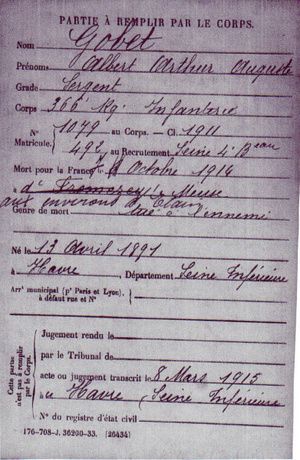 PARTIE À REMPLIR PAR LE CORPS.
Nom Gobet
Prénoms Albert Arthur Auguste
Grade Sergent
Corps 366e Rg. Infanterie
N° 1079 au Corps. — Cl. 1911
Matricule. 492 au Recrutement Seine 4e Beau
Mort pour la France le Octobre 1914
à d' Meuse
aux environs d'Etain
Genre de mort tué à l'ennemi
Né le 13 Avril 1891
à Havre, Département Seine Inférieure
Arrt municipal (pr Paris et Lyon),
à défaut rue et N°
Cette partie
n'est pas à remplir
par le Corps.
Jugement rendu le
par le Tribunal de
acte ou jugement transcrit le 8 Mars 1915
à Havre (Seine Inférieure
N° du registre d'état civil
176-708-J. 36200-33. (26434)